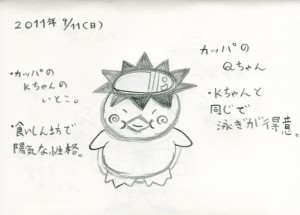 2011年 9/11(日)
カッパの
Qちゃん
・カッパの
Kちゃんの
いとこ。
・Kちゃんと
同じで
泳ぎが得意。
・食いしん坊で
陽気な性格。